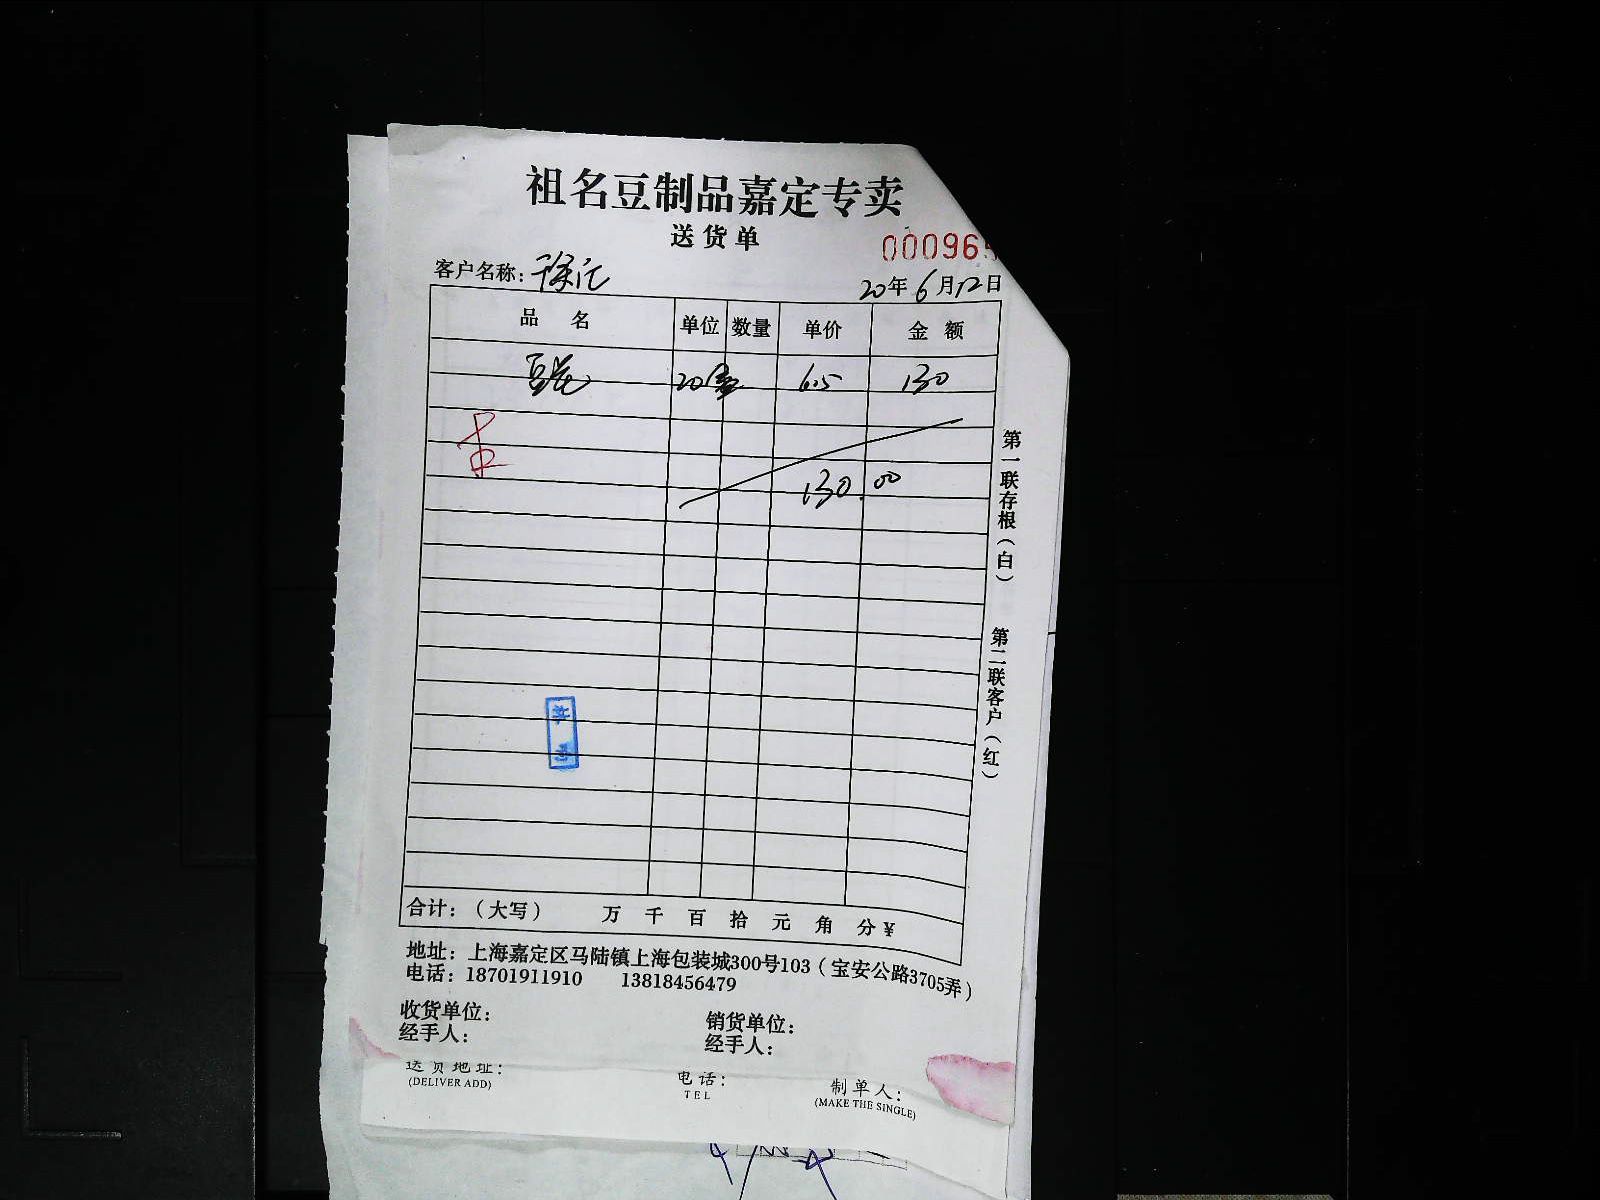 祖名豆制品嘉定专卖
送货单
000965
客户名称：徐汇
20年6月12日
品 名 单位 数量 单价 金 额
豆花 20盒 6.5 130
130.00
第一联存根（白）
第二联客户（红）
合计：（大写） 万 千 百 拾 元 角 分￥
地址：上海嘉定区马陆镇上海包装城300号103（宝安公路3705弄）
电话：18701911910 13818456479
收货单位：
销货单位：
经手人：
经手人：
送货地址：
(DELIVER ADD)
电话：
TEL
制单人：
(MAKE THE SINGLE)